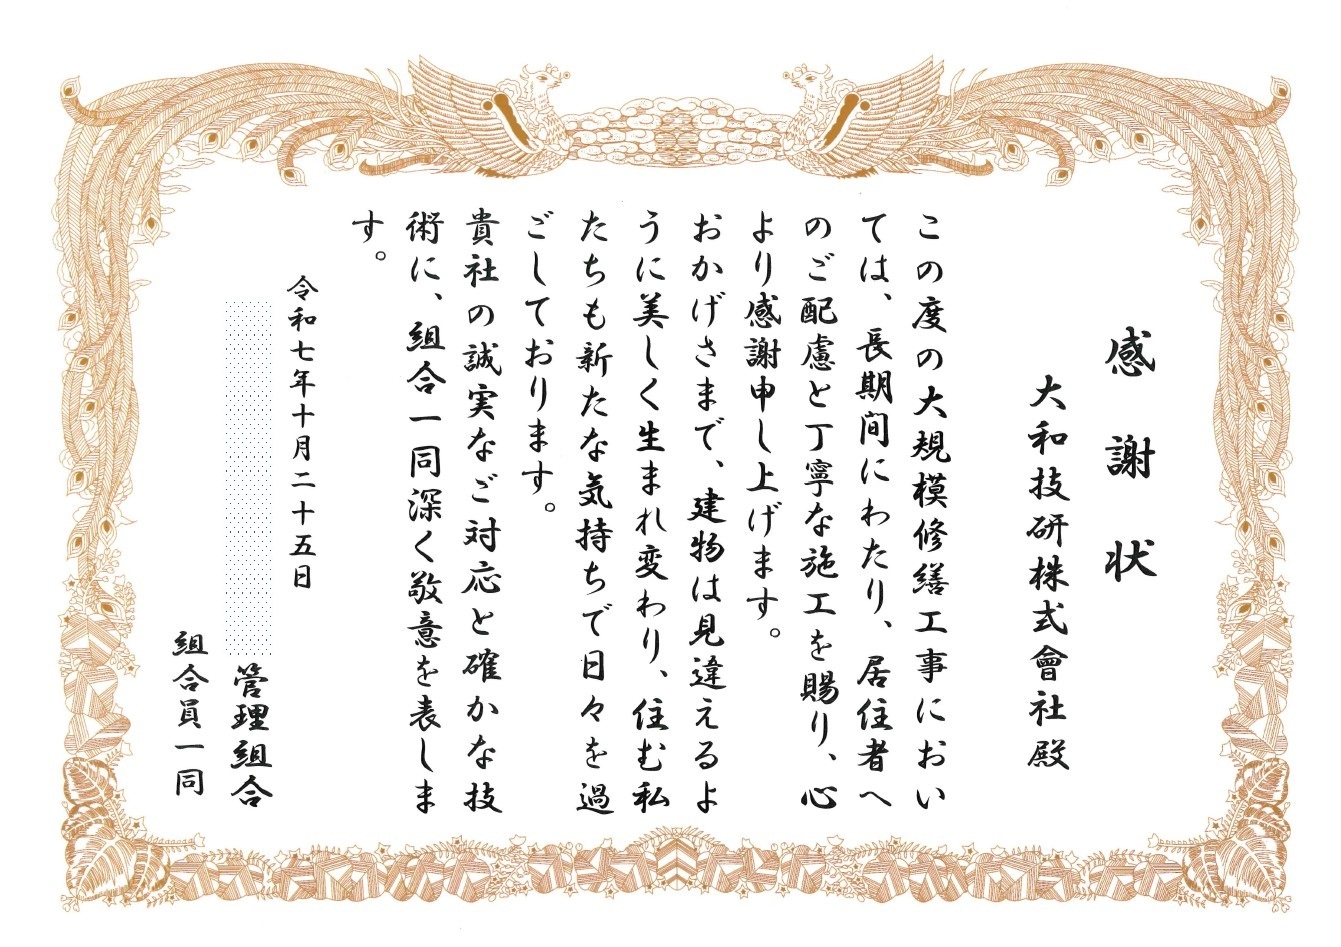 感謝状
大和技研株式會社殿
この度の大規模修繕工事におい
ては、長期間にわたり、居住者へ
のご配慮と丁寧な施工を賜り、心
より感謝申し上げます。
おかげさまで、建物は見違えるよ
うに美しく生まれ変わり、住む私
たちも新たな気持ちで日々を過
ごしております。
貴社の誠実なご対応と確かな技
術に、組合一同深く敬意を表しま
す。
令和七年十月二十五日
管理組合
組合員一同